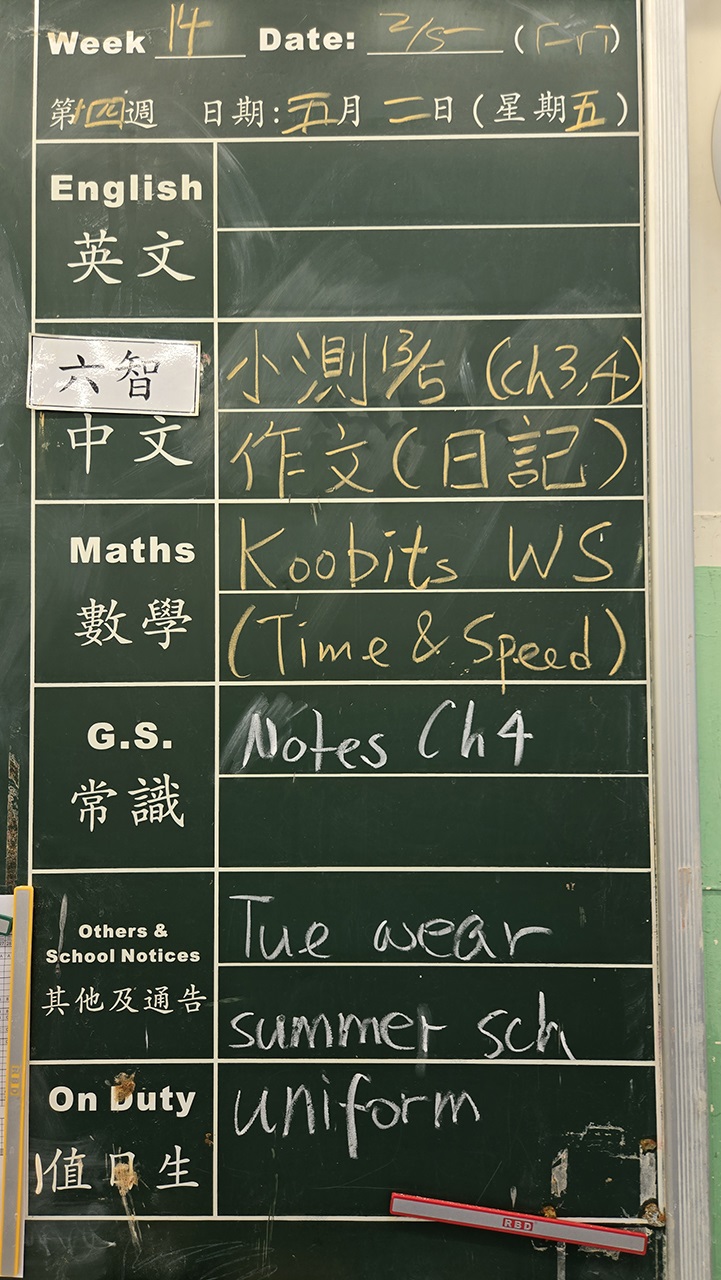 Week 14 Date: 2/5 (Fri)
第十四週 日期:五月二日(星期五)
English
英文
六智
小測 13/5 (ch3,4)
中文
作文(日記)
Maths
Koobits WS
數學
(Time & Speed)
G.S.
Notes Ch4
常識
Others &
School Notices
Tue wear
其他及通告
summer sch
On Duty
uniform
值日生
RBD